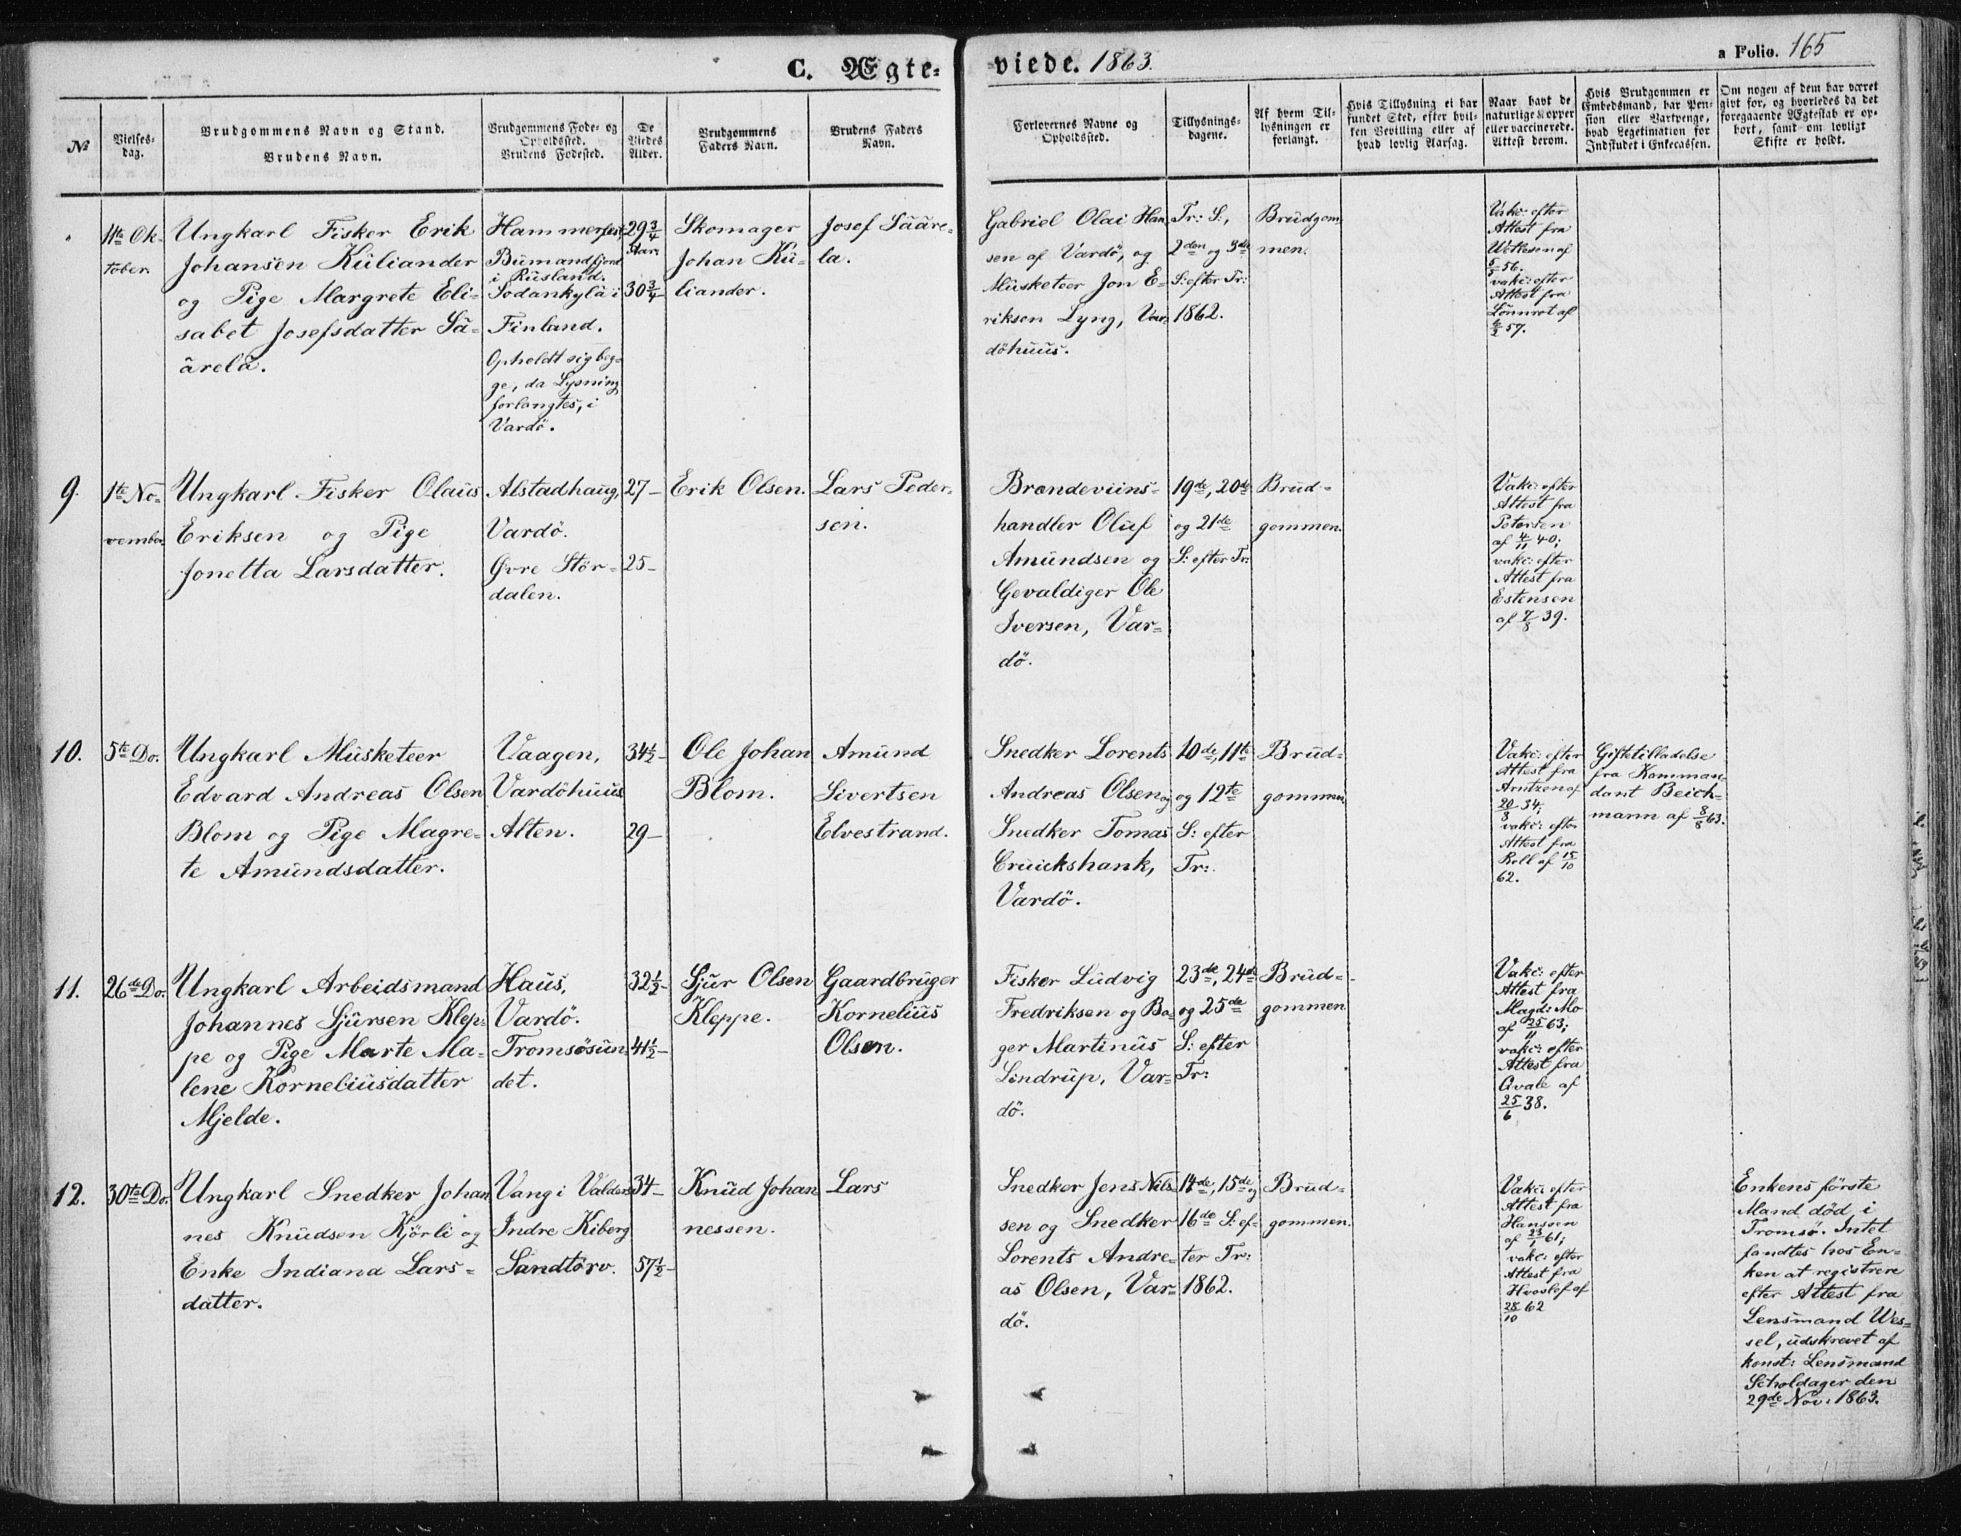 C. Ægte-
viede. 1863.
a Folio. 165
№
Vielses-
dag.
Brudgommens Navn og Stand.
Brudens Navn.
Brudgommens Føde- og
Opholdssted.
Brudens Fødested.
De
Viedes
Alder.
Brudgommens
Faders Navn.
Brudens Faders
Navn.
Forlovernes Navne og
Opholdssted.
Tillysnings-
dagene.
Af hvem Til-
lysningen er
forlangt.
Hvis Tillysning ei har
fundet Sted, efter hvil-
ken Bevilling eller af
hvad lovlig Aarsag.
Naar havt de
naturlige Kopper
eller vaccinerede.
Attest derom.
Hvis Brudgommen er
Embedsmand, har Pen-
sion eller Vartpenge,
hvad Legetimation for
Indskudet i Enkecassen.
Om nogen af dem har været
givt for, og hvorledes da det
foregaaende Ægteskab er op-
hørt, samt om lovligt
Skifte er holdt.
11te Ok-
tober.
Ungkarl Fisker Erik
Johansen Kuliander
og Pige Margrete Eli-
sabet Josefsdatter Sä-
ärelä.
Hammerfest,
Bumandfjord
i Rusland.
Sodankylä i
Finland.
Opholdt sig beg-
ge, da Lysning
forlangtes, i
Vardö.
29 3/4
Aar.
30 3/4 –
Skomager
Johan Ku-
liander.
Josef Sääre-
la.
Gabriel Olai Han-
sen af Vardö, og
Musketeer Jon E-
riksen Lyng, Var-
döhuus.
Tr: S:,
2den og 3de
S: efter Tr:
1862.
Brudgom-
men.
Vakc: efter
Attest fra
af
5/5 56.
vakc: efter
Attest fra
Lönnrot af
/2 57.
9.
1te No-
vember.
Ungkarl Fisker Olaus
Eriksen og Pige
Jonetta Larsdatter.
Alstadhaug,
Vardö.
Øvre Stör-
dalen.
27 –
25 –
Erik Olsen.
Lars Peder-
sen.
Brændeviins-
handler Oluf
Amundsen og
Gevaldiger Ole
Iversen, Var-
dö.
19de, 20de
og 21de
S: efter Tr:
Brud-
gommen.
Vakc: efter
Attest fra
Petersen
af 4/11 40;
vakc: efter
Attest fra
Estensen
af 7/8 39.
10.
5te Do.
Ungkarl Musketeer
Edvard Andreas Olsen
Blom og Pige Magre-
te Amundsdatter.
Vaagen,
Vardöhuus
Alten.
34 1/2 –
29 –
Ole Johan
Blom.
Amund
Sivertsen
Elvestrand.
Snedker Lorents
Andreas Olsen og
Snedker Tomas
Cruickshank,
Vardö.
10de, 11te
og 12te
S: efter
Tr:
Brud-
gommen.
Vakc: efter
Attest fra
Arntzen af
20/8 34;
vakc: efter
Attest fra
Roll af 15/10
62.
Giftetilladelse
fra Komman-
dant Beich-
mann af 8/8 63.
11.
26de Do.
Ungkarl Arbeidsmand
Johannes Sjursen Klep-
pe og Pige Marte Ma-
lene Korneliusdatter
Mjelde.
Haus,
Vardö.
Tromsösun-
det.
32 1/2 –
41 1/2 –
Sjur Olsen
Kleppe.
Gaardbruger
Kornelius
Olsen.
Fisker Ludvig
Fredriksen og Ba-
ger Martinus
Lindrup, Var-
dö.
23de, 24de
og 25de
S: efter
Tr:
Brud-
gommen
Vakc: efter
Attest fra
Magd: Mo
af 25/4 63;
vakc: efter
Attest fra
Qvale af
25/6 38.
12.
30te Do.
Ungkarl Snedker Johan-
nes Knudsen Kjörli og
Enke Indiana Lars-
datter.
Vang i Valders
Indre Kiberg
Sandtörv.
34 –
57 1/2 –
Knud Johan-
nessen.
Lars
Snedker Jens Nils-
sen og Snedker
Lorents Andre-
as Olsen, Var-
dö.
14de, 15de og
16de S: ef-
ter Tr:
1862.
Brud-
gommen.
Vakc: efter
Attest fra
Hansen
af 23/1 61;
vakc: efter
Attest fra
Hvoslef af
28/10 62
Enkens förste
Mand död i
Tromsö. Intet
fandtes hos En-
ken at registrere
efter Attest fra
Lensmand Wes-
sel, udskrevet af
konst: Lensmand
Scholdager den
29de Nov: 1863.